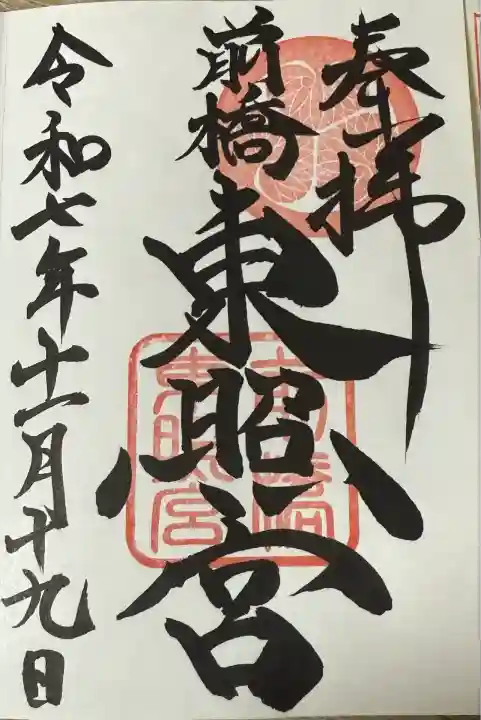 奉拝
前橋東照宮
令和七年十一月十九日
前橋
東照宮